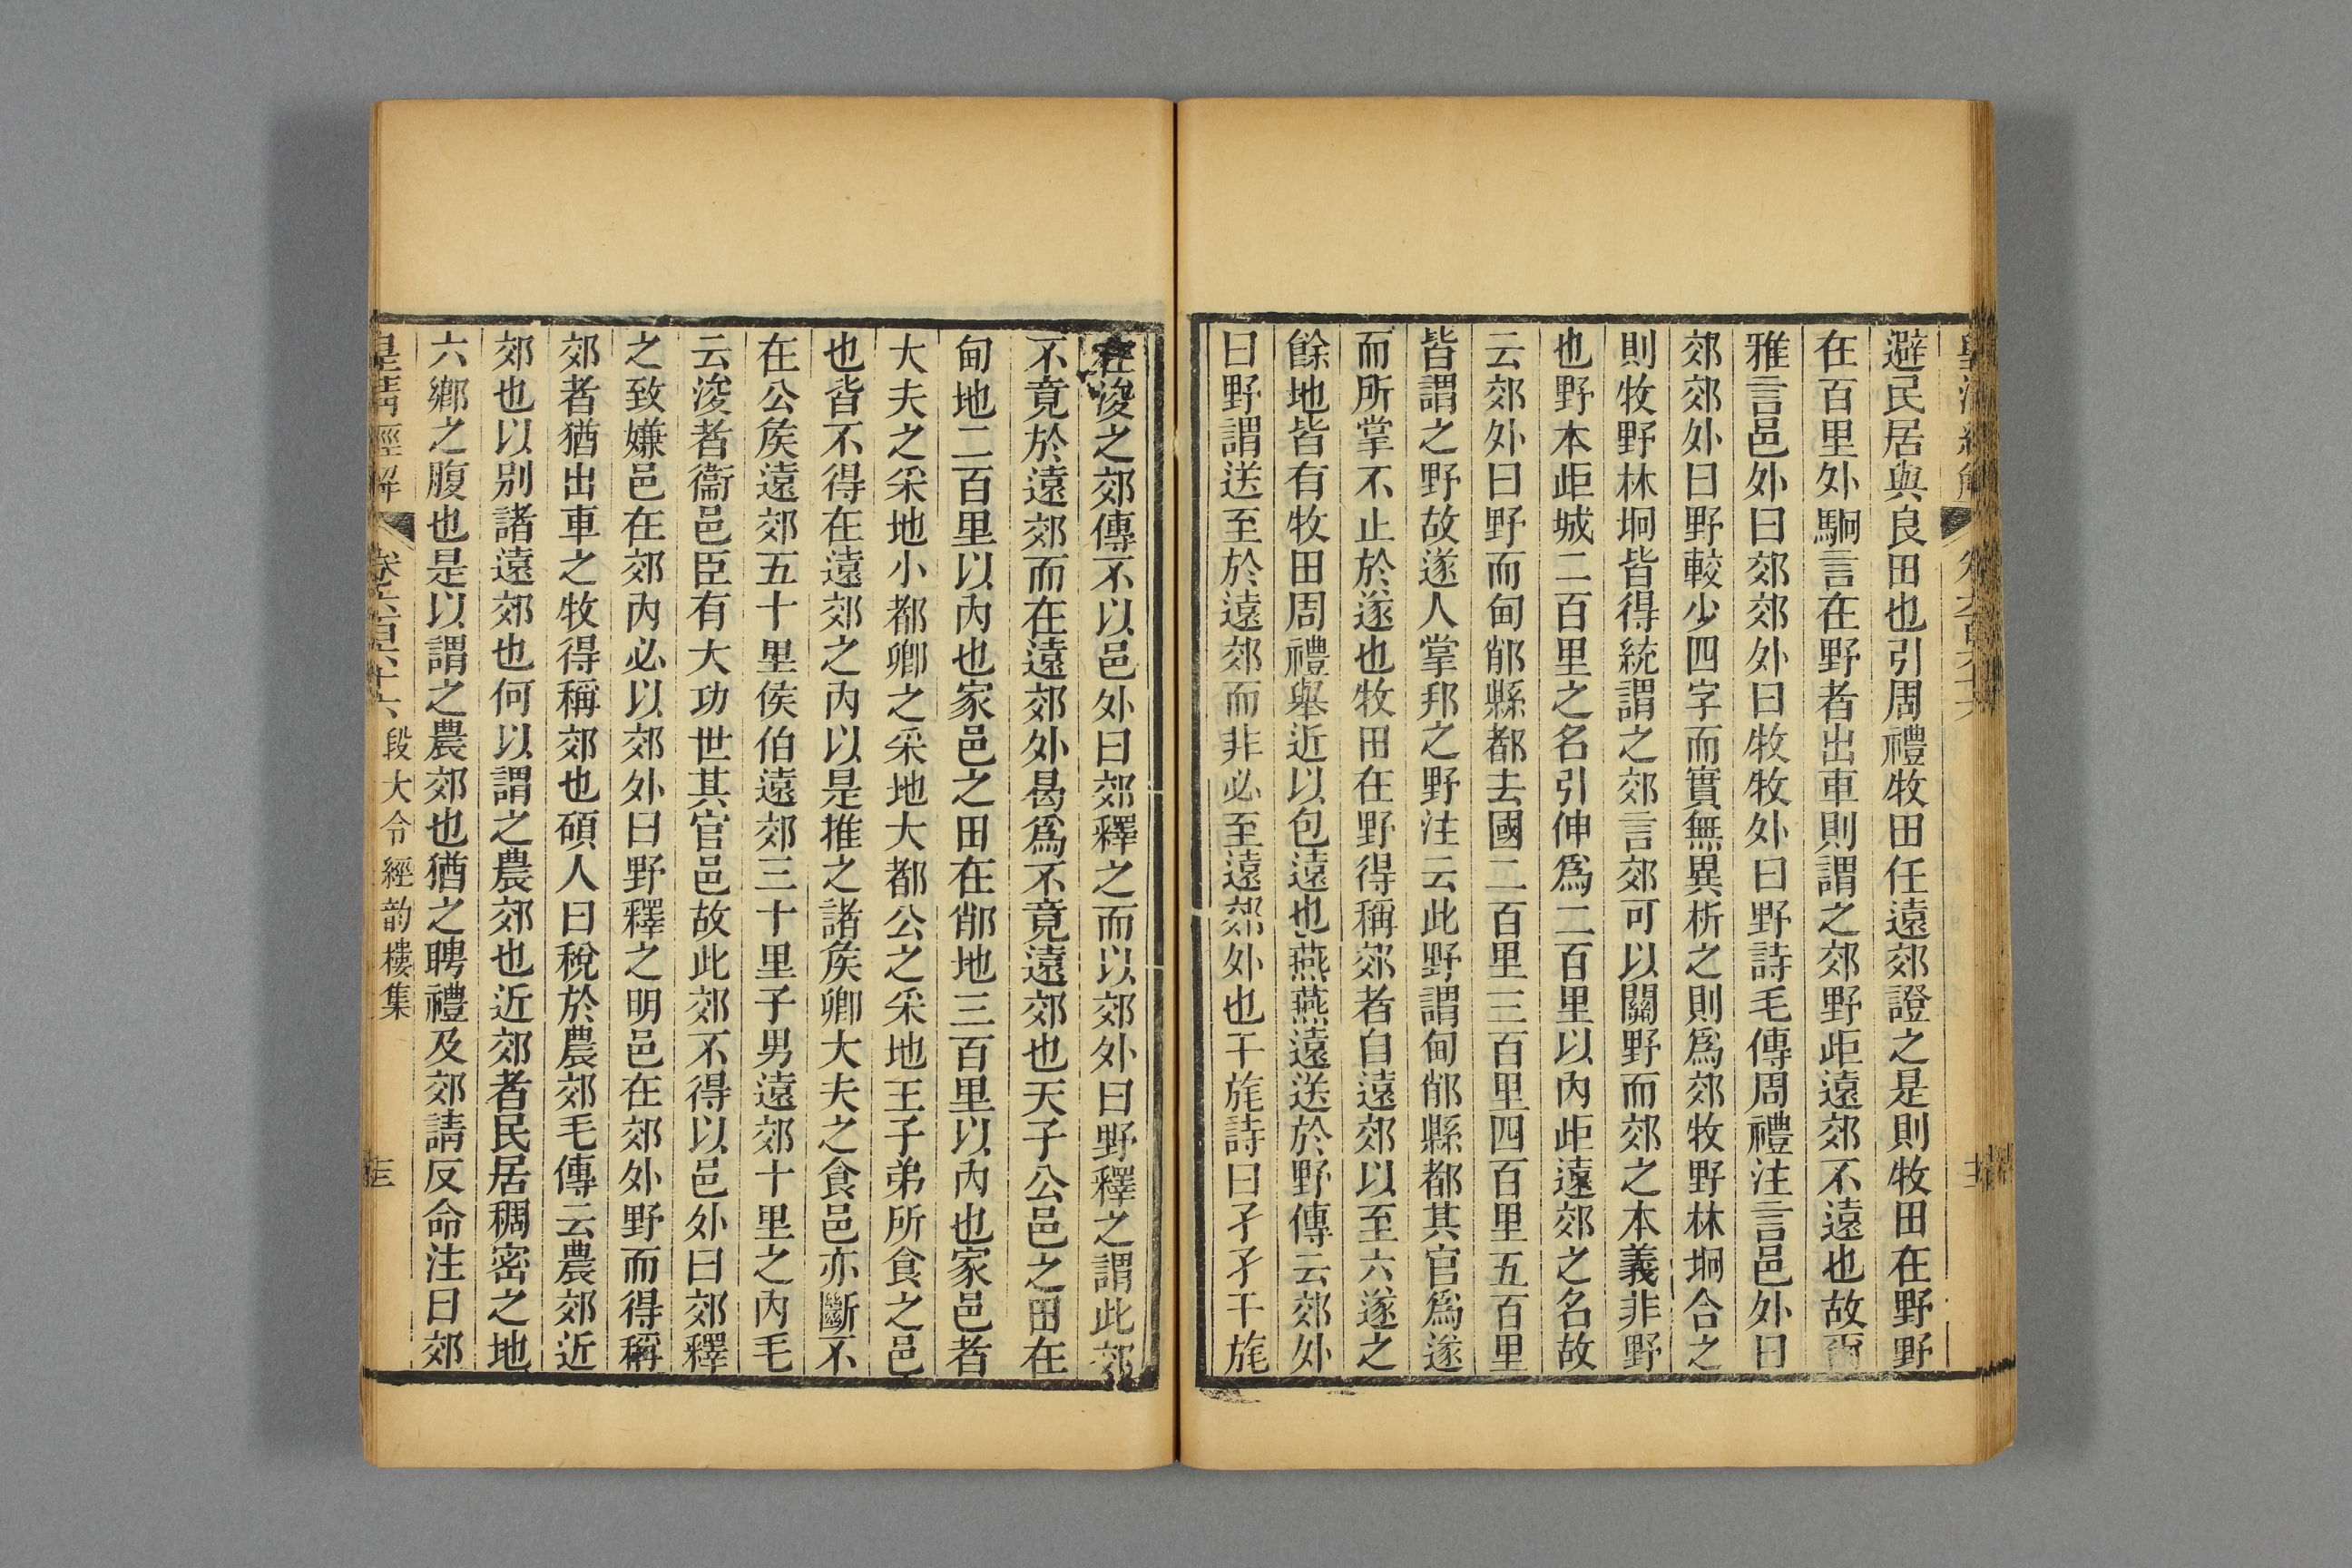 避民居與良田也引周禮牧田任遠郊證之是則牧田在野野
在百里外駉言在野者出車則謂之郊野距遠郊不遠也故爾
雅言邑外曰郊郊外曰牧牧外曰野詩毛傳周禮注言邑外曰
郊郊外曰野較少四字而實無異析之則爲郊牧野林坰合之
則牧野林坰皆得統謂之郊言郊可以關野而郊之本義非野
也野本距城二百里之名引伸爲二百里以內距遠郊之名故
云郊外曰野而甸郶縣都去國二百里三百里四百里五百里
皆謂之野故遂人掌邦之野注云此野謂甸郶縣都其官爲遂
而所掌不止於遂也牧田在野得稱郊者自遠郊以至六遂之
餘地皆有牧田周禮舉近以包遠也燕燕遠送於野傳云郊外
曰野謂送至於遠郊而非必至遠郊外也干旄詩曰孑孑干旄
在浚之郊傳不以邑外曰郊釋之而以郊外曰野釋之謂此郊
不竟於遠郊而在遠郊外曷爲不竟遠郊也天子公邑之田在
甸地二百里以內也家邑之田在郶地三百里以內也家邑者
大夫之采地小都卿之采地大都公之采地王子弟所食之邑
也皆不得在遠郊之內以是推之諸矦卿大夫之食邑亦斷不
在公矦遠郊五十里侯伯遠郊三十里子男遠郊十里之內毛
云浚者衞邑臣有大功世其官邑故此郊不得以邑外曰郊釋
之致嫌邑在郊內必以郊外曰野釋之明邑在郊外野而得稱
郊者猶出車之牧得稱郊也碩人曰稅於農郊毛傳云農郊近
郊也以別諸遠郊也何以謂之農郊也近郊者民居稠密之地
六鄉之腹也是以謂之農郊也猶之聘禮及郊請反命注曰郊
皇清經解 卷六百六十六 段大令經韵樓集 三